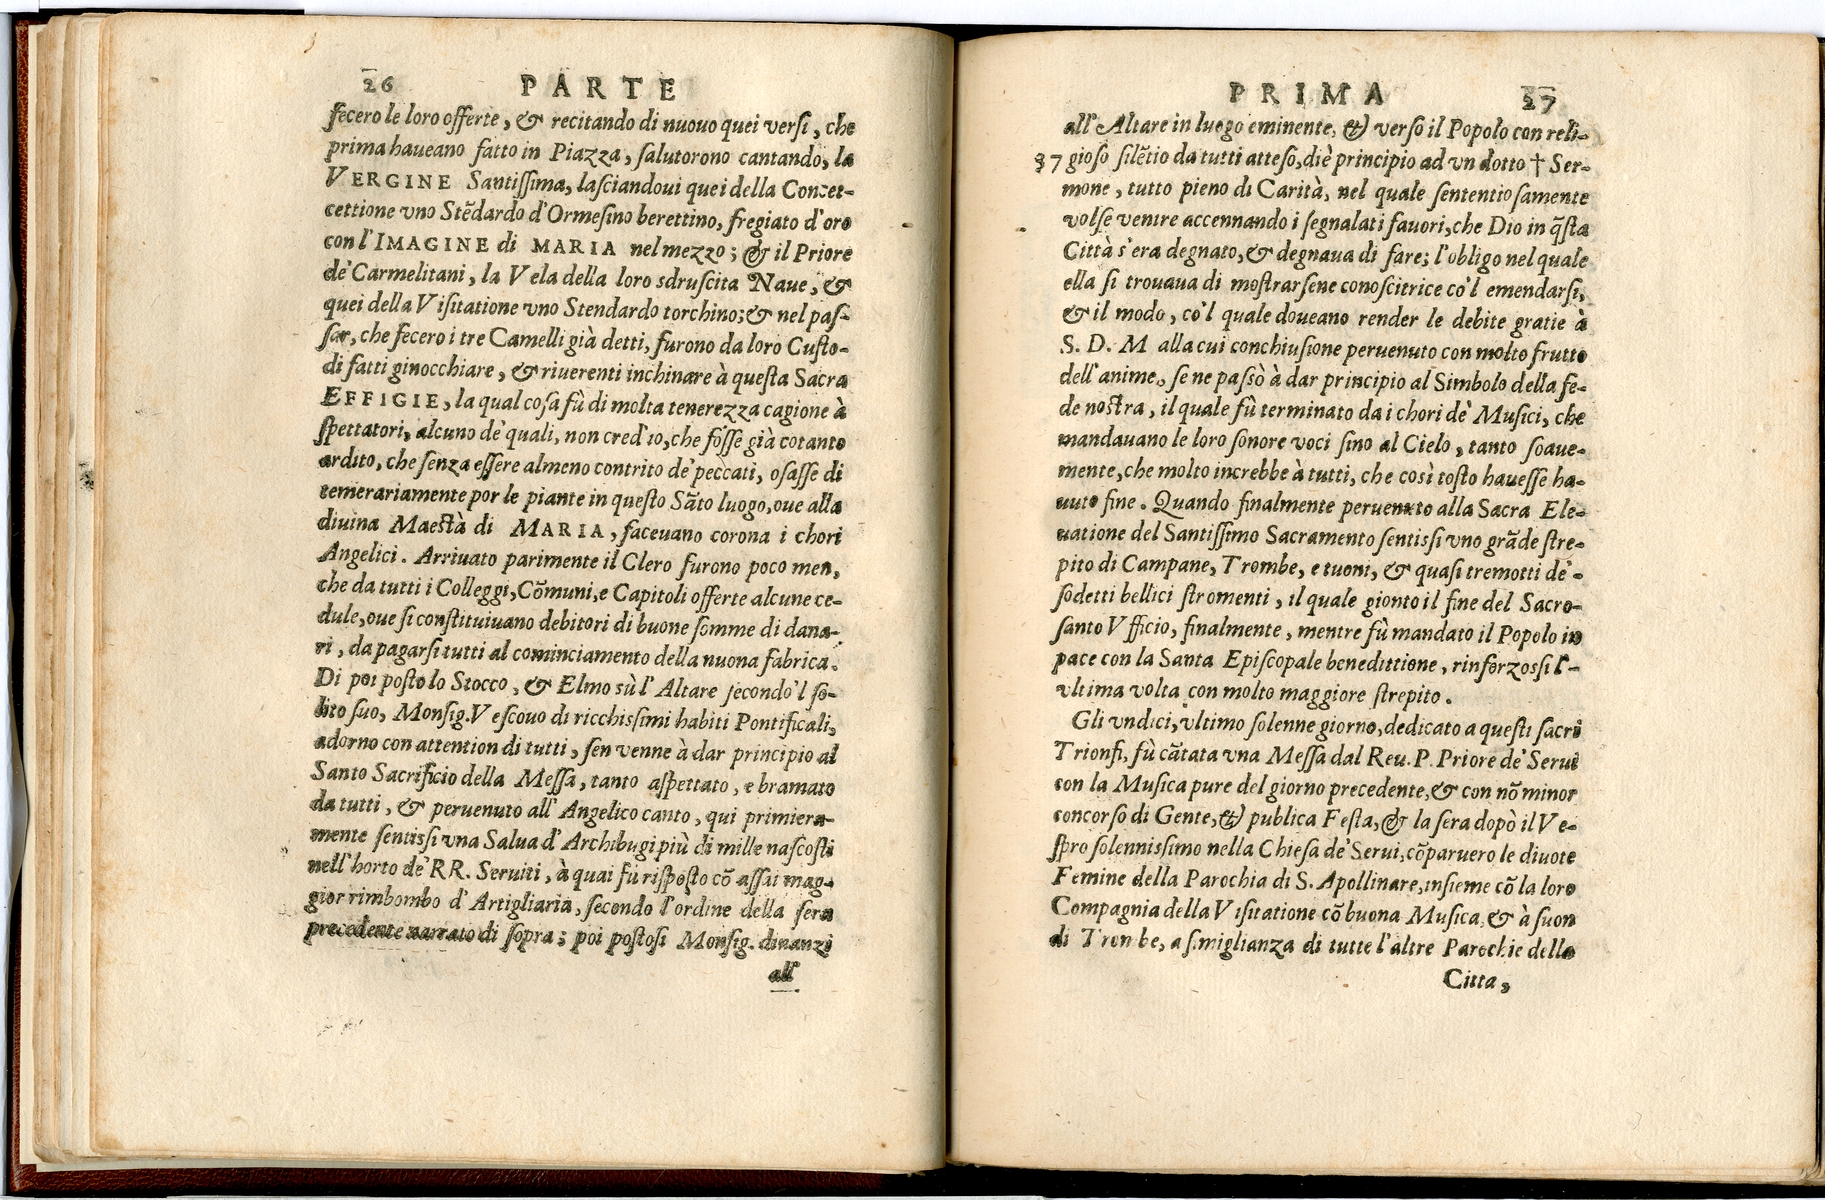 26 PARTE
fecero le loro offerte, & recitando di nuouo quei versi, che
prima haueano fatto in Piazza, salutorono cantando, la
VERGINE Santissima, lasciandoui quei della Concet-
cettione vno Stẽdardo d'Ormesino berettino, fregiato d'oro
con l'IMAGINE di MARIA nel mezzo; & il Priore
de' Carmelitani, la Vela della loro sdruscita Naue, &
quei della Visitatione vno Stendardo torchino; & nel pas-
sar, che fecero i tre Camelli già detti, furono da loro Custo-
di fatti ginocchiare, & riuerenti inchinare à questa Sacra
EFFIGIE, la qual cosa fù di molta tenerezza cagione à
spettatori, alcuno de' quali, non cred'io, che fosse già cotanto
ardito, che senza essere almeno contrito de' peccati, osasse di
temerariamente por le piante in questo Sãto luogo, oue alla
diuina Maestà di MARIA, faceuano corona i chori
Angelici. Arriuato parimente il Clero furono poco men,
che da tutti i Colleggi, Cõmuni, e Capitoli offerte alcune ce-
dule, oue si constituiuano debitori di buone somme di dana-
ri, da pagarsi tutti al cominciamento della nuona fabrica.
Di poi posto lo Stocco, & Elmo sù l'Altare secondo'l so-
lito suo, Monsig. Vescouo di ricchissimi habiti Pontificali,
adorno con attention di tutti, sen venne à dar principio al
Santo Sacrificio della Messa, tanto aspettato, e bramato
da tutti, & peruenuto all'Angelico canto, qui primiera-
mente sentissi vna Salua d'Archibugi più di mille nascosti
nell'horto de' RR. Seruiti, à quai fù risposto cõ assai mag-
gior rimbombo d'Artigliaria, secondo l'ordine della sera
precedente narrato di sopra; poi postosi Monsig. dinanzi
all'
PRIMA 27
all'Altare in luogo eminente, & verso il Popolo con reli-
37 gioso silẽtio da tutti atteso, diè principio ad vn dotto † Ser-
mone, tutto pieno di Carità, nel quale sententiosamente
volse venire accennando i segnalati fauori, che Dio in q̃sta
Città s'era degnato, & degnaua di fare; l'obligo nel quale
ella si trouaua di mostrarsene conoscitrice co'l emendarsi,
& il modo, co'l quale doueano render le debite gratie à
S. D. M alla cui conchiusione peruenuto con molto frutto
dell'anime, se ne passò à dar principio al Simbolo della fe-
de nostra, il quale fù terminato da i chori de' Musici, che
mandauano le loro sonore voci sino al Cielo, tanto soaue-
mente, che molto increbbe à tutti, che così tosto hauesse ha-
uuto fine. Quando finalmente peruenuto alla Sacra Ele-
uatione del Santissimo Sacramento sentissi vno grãde stre-
pito di Campane, Trombe, e tuoni, & quasi tremotti de'-
sodetti bellici stromenti, il quale gionto il fine del Sacro-
santo Vfficio, finalmente, mentre fù mandato il Popolo in
pace con la Santa Episcopale benedittione, rinforzossi l'-
vltima volta con molto maggiore strepito.
Gli vndici, vltimo solenne giorno, dedicato a questi sacri
Trionfi, fù cãtata vna Messa dal Reu. P. Priore de' Serui
con la Musica pure del giorno precedente, & con nõ minor
concorso di Gente, & publica Festa, & la sera dopò il Ve-
spro solennissimo nella Chiesa de' Serui, cõparuero le diuote
Femine della Parochia di S. Apollinare, insieme cõ la loro
Compagnia della Visitatione cõ buona Musica, & à suon
di Trombe, a s.miglianza di tutte l'altre Parochie della
Citta,